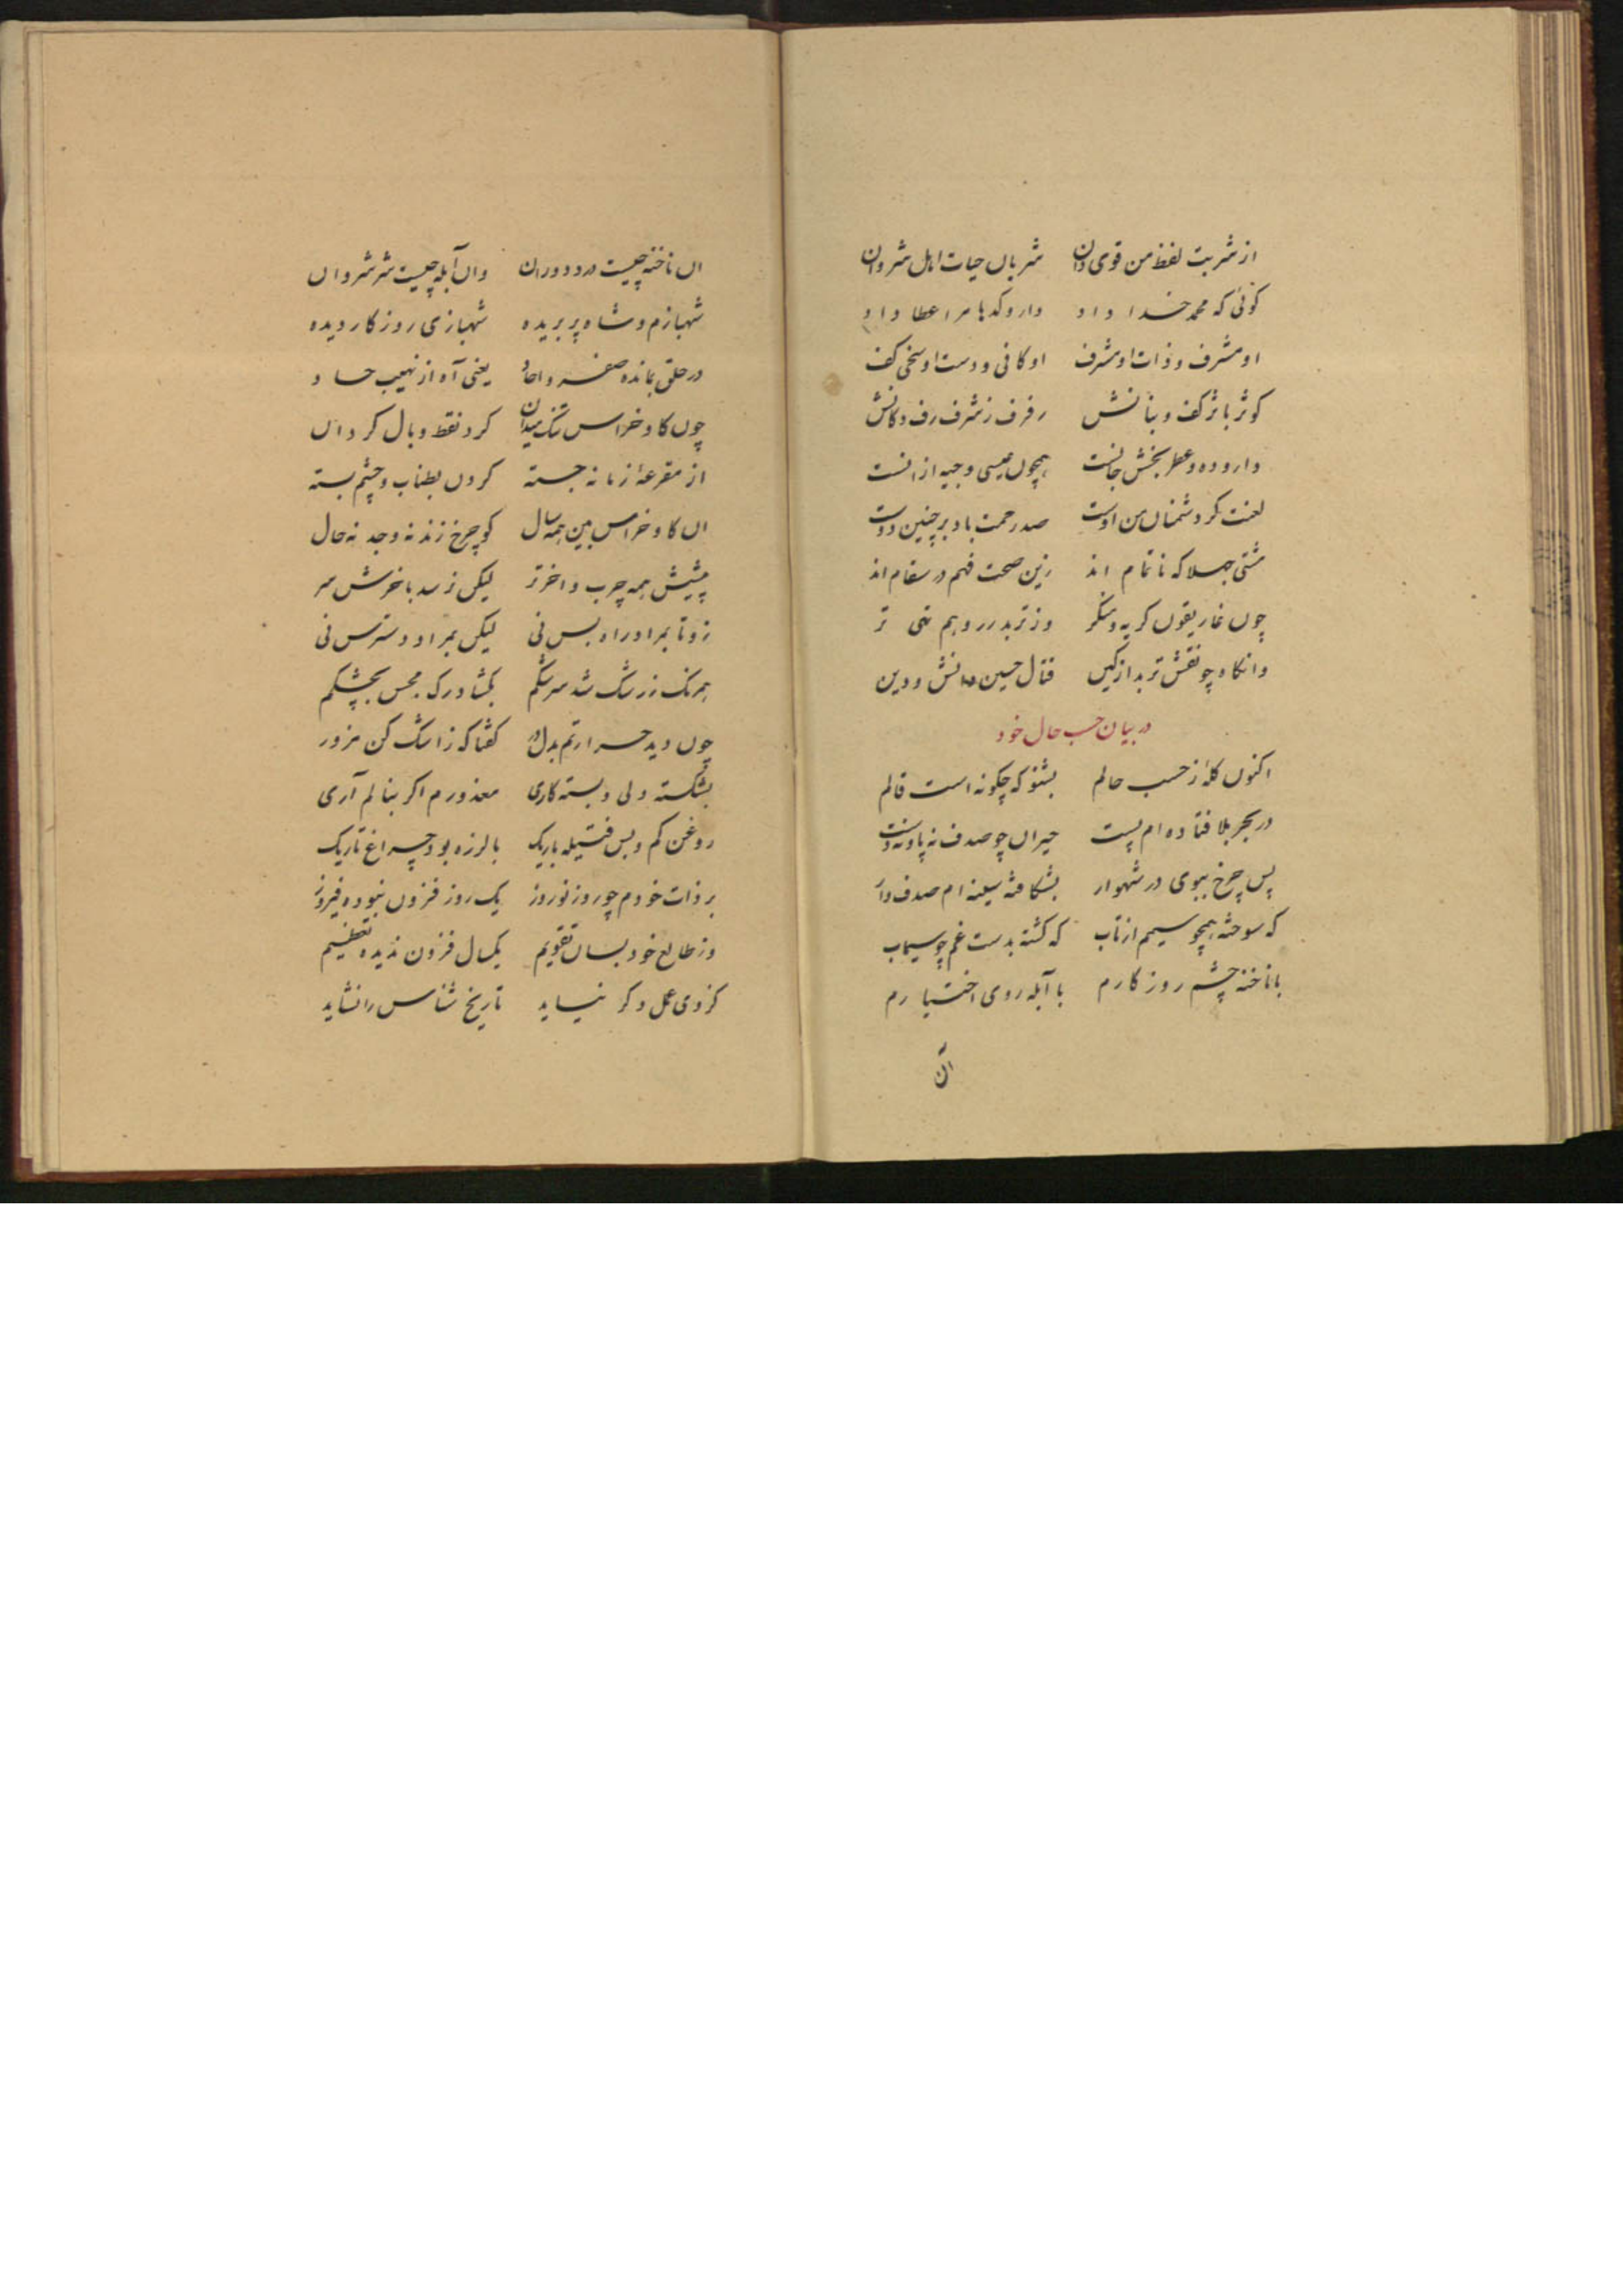 از شربت لفظ من قوی دان شربان حیات اهل شروان
کوئی که محمد خدا داد داروکدها مرا عطا داد
او مشرف و ذات او مشرف او کافی و دست او سخی کف
کوثر باثر کف و بنانش رفرف ز شرف رف دکانش
دارو ده و عطر بخش جانست همچون عیسی وجیه ازانست
لعنت کر دشمنان من اوست صد رحمت باد بر چنین دوست
مشتی جهلا که ناتمام اند زین صحت فهم در سقام اند
چون غاریقون کریه و منکر وز تربد رو بهم تهی تر
وانکاه چو نقش تربد از کین قتال حسین دانش و دین
در بیان حسب حال خود
اکنون کله از حسب حالم بشنو که چکونه است قالم
در بحر بلا فتاده ام پست حیران چو صدف نه پا و نه دست
پس چرخ ببوی در شهوار بشکافته سینه ام صدف وار
که سوخته همچو سیمم از تاب که کشته بدست غم چو سیماب
با ناخنه چشم روزکارم با آبله روی اختیارم
آن
ان ناخنه چیست درد دوران وان آبله چیست شر شروان
شهبازم و شاه پر بریده شهبازی روزکار دیده
در حلق بمانده صفر و احاد یعنی آه از نهیب حساد
چون کاو خراس تنک میدان کرد نقط وبال کردان
از مقرعه زمانه جسته کردن بطناب و چشم بسته
ان کاو خراس بین همه سال کو چرخ زند نه وجد نه حال
پیشش همه چرب و اخر تر لیکن نرسد باخرش سر
زو تا بمراد راه بس نی لیکن بمراد دسترس نی
همرنک زرشک شد سرشکم بکشاد رک مجس بجشکم
چون دید حرارتم بدل در کفتا که زاشک کن مزور
بشکسته دلی و بسته کاری معذورم اکر بنالم آری
روغن کم و بس فتیله باریک با لرزه بود چراغ تاریک
بر ذات خودم چو روز نوروز یک روز فزون نبوده فیروز
وز طالع خود بسان تقویم یکسال فزون ندیده تعظیم
کز وی عمل دکر نیاید تاریخ شناس را نشاید